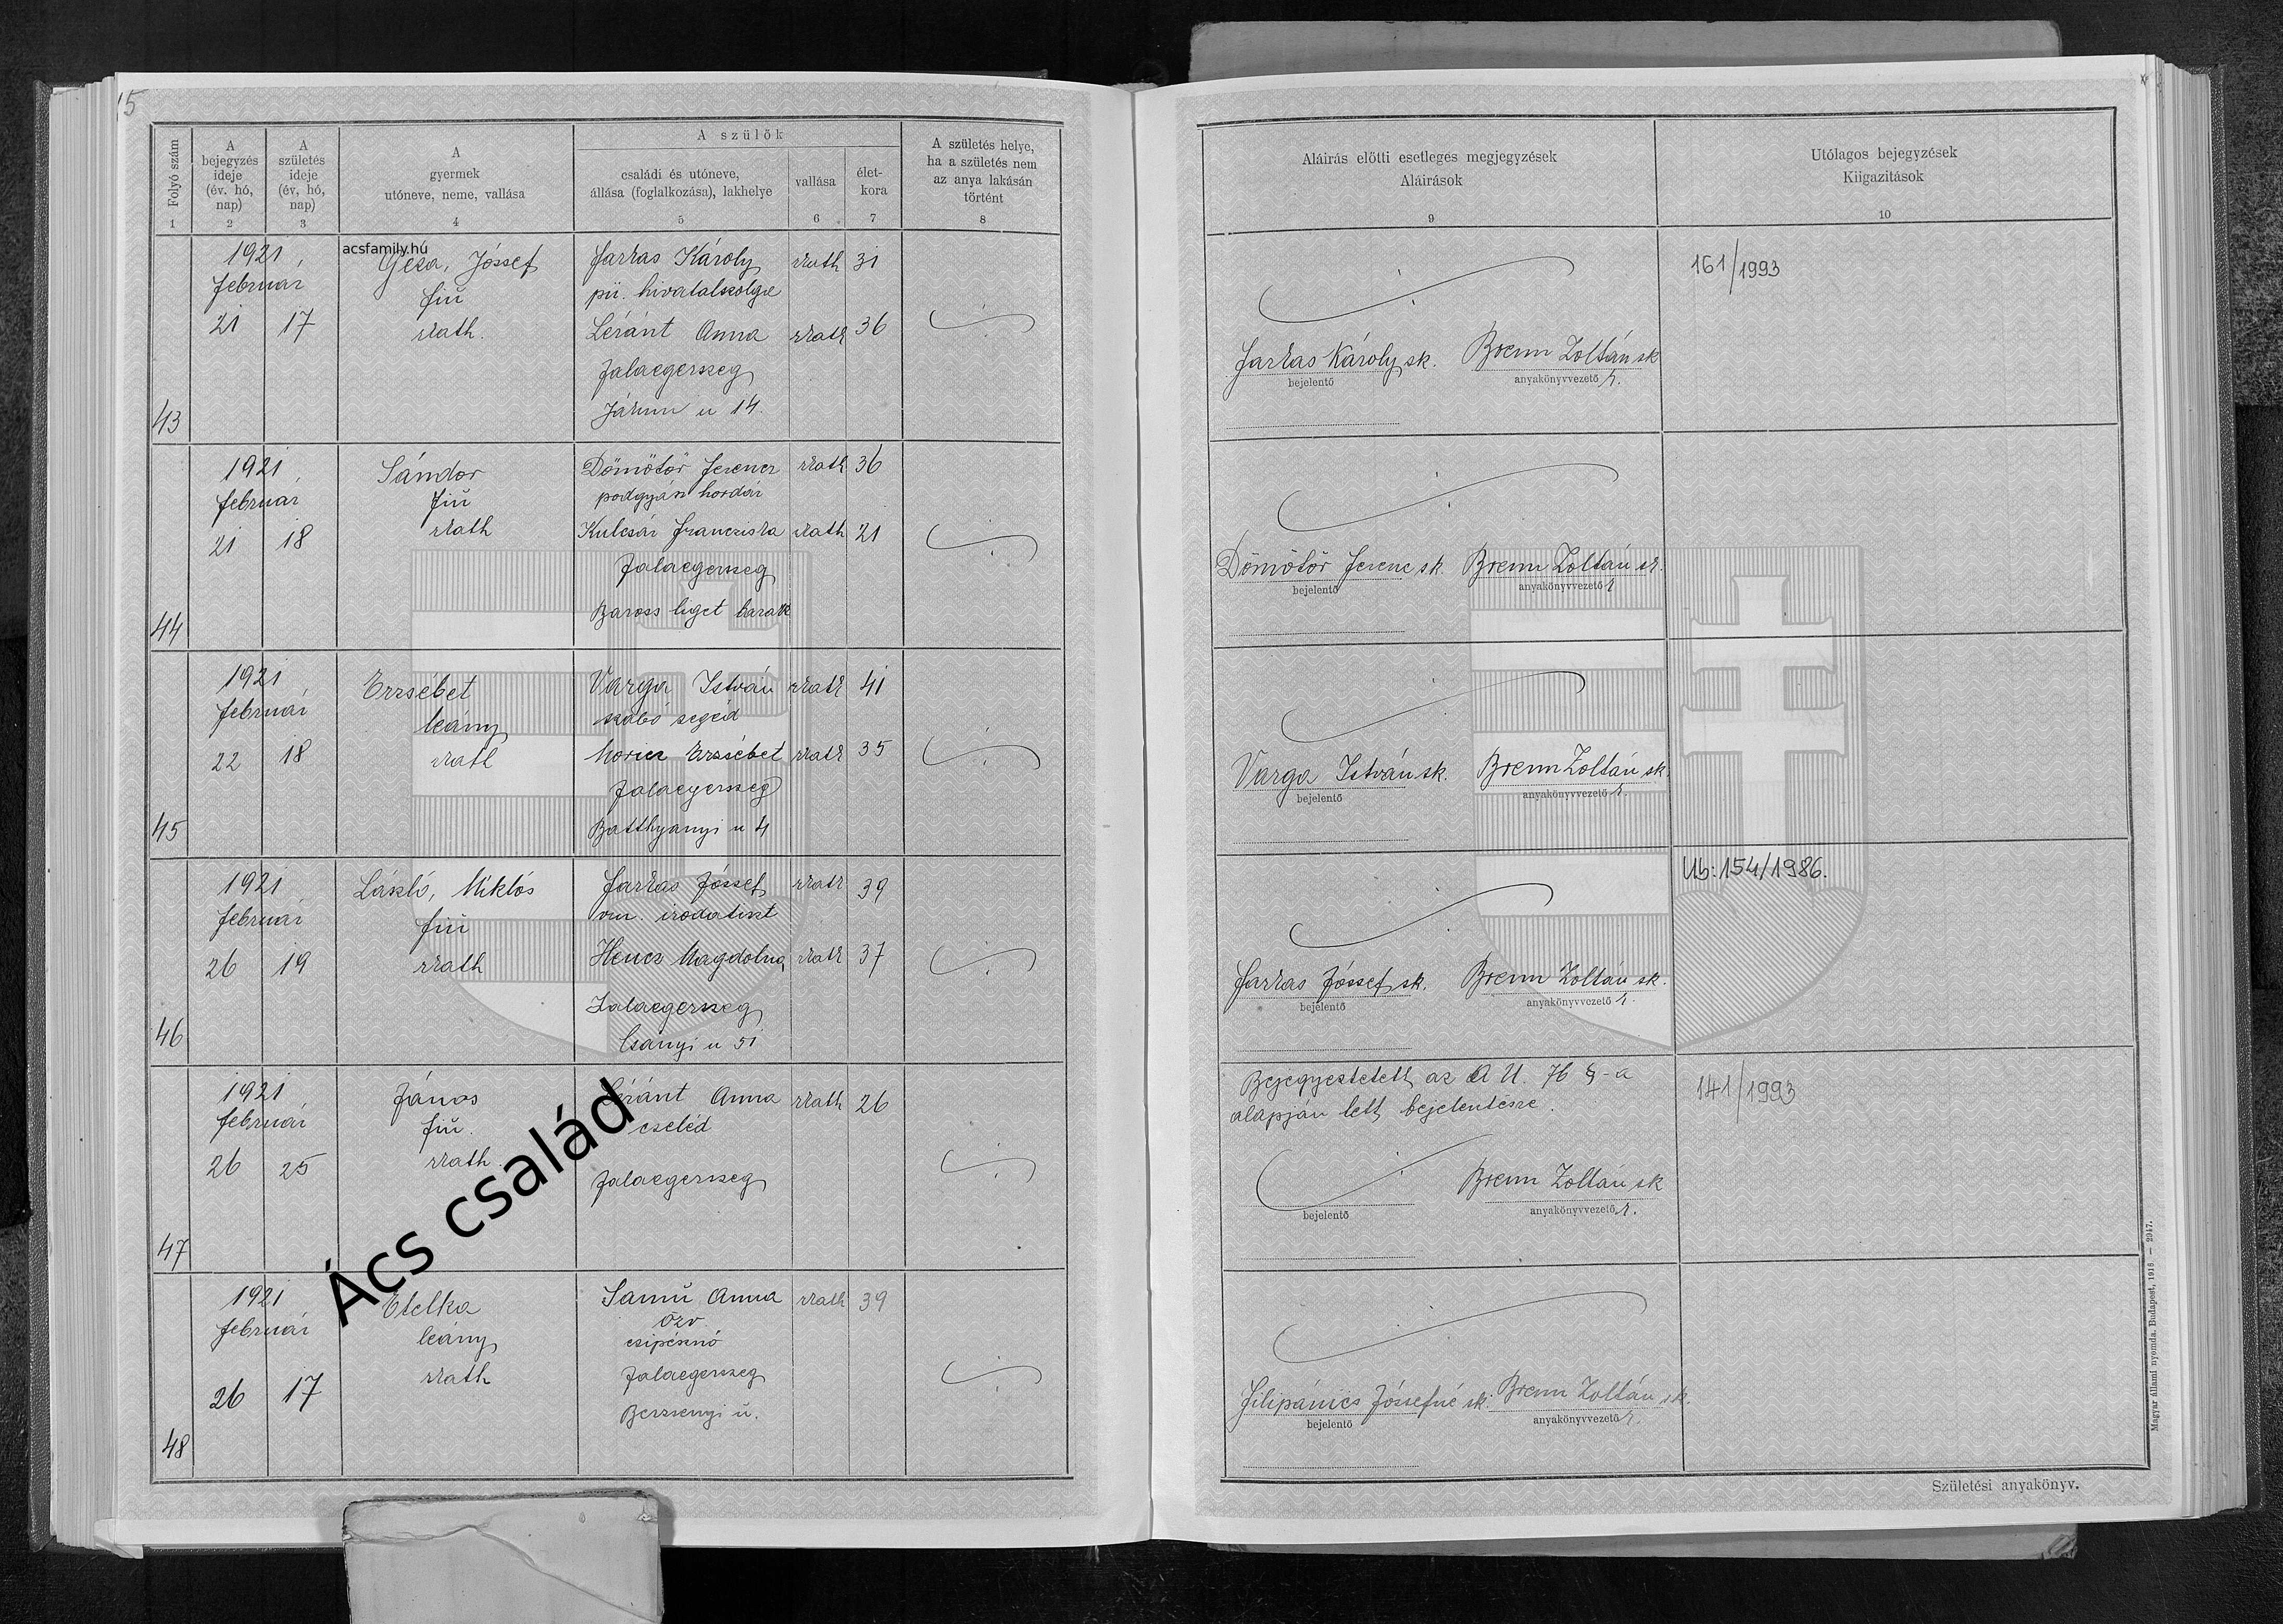 15
A szülők
Folyó szám
A bejegyzés ideje (év, hó, nap)
A születés ideje (év, hó, nap)
A gyermek utóneve, neme, vallása
családi és utóneve, állása (foglalkozása), lakhelye
vallása
élet-kora
A születés helye, ha a születés nem az anya lakásán történt
Aláirás előtti esetleges megjegyzések
Aláirások
Utólagos bejegyzések
Kiigazitások
1 2 3 4 5 6 7 8 9 10
acsfamily.hu
1921 Géza, József Farkas Károly rkath 31 161/1993
február fiú pü. hivatalszolga
21 17 rkath. Léránt Anna rkath 36
Zalaegerszeg
Farkas Károly sk. Brenn Zoltán sk
bejelentő anyakönyvvezető h.
43 u 14.
1921 Sándor Dömötör Ferencz rkath 36
február fiú podgyász hordár
21 18 rkath Kulcsár Franciska rkath 21
Zalaegerszeg
Dömötör Ferenc sk. Brenn Zoltán sk.
bejelentő anyakönyvvezető h
44 Baross liget barakk
1921 Erzsébet Varga István rkath 41
február leány szabó segéd
22 18 rkath Moricz Erzsébet rkath 35
Zalaegerszeg
Varga István sk. Brenn Zoltán sk.
bejelentő anyakönyvvezető h.
45 Batthyanyi u 4
1921 László, Miklós Farkas József rkath 39 Ub: 154/1986.
február fiú vm. irodatiszt
26 19 rkath Hencz Magdolna rkath 37
Zalaegerszeg
Farkas József sk. Brenn Zoltán sk.
bejelentő anyakönyvvezető h.
46 Csányi u 51
1921 János Léránt Anna rkath 26 Bejegyeztetett az A U. 76 §-a 141/1993
február fiú. cseléd alapján tett bejelentésre.
26 25 rkath. Zalaegerszeg
Brenn Zoltán sk
bejelentő anyakönyvvezető h.
47
Ács család
1921 Etelka Samu Anna rkath 39
február leány özv
csipésznő
26 17 rkath Zalaegerszeg
Berzsenyi u.
Filipánics Józsefné sk. Brenn Zoltán sk.
bejelentő anyakönyvvezető h.
48
Magyar állami nyomda. Budapest, 1916. — 2947.
Születési anyakönyv.